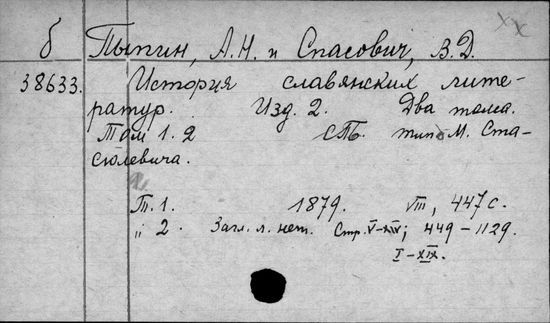 б Пыпин, А.Н. и Спасович, В.Д.
38633. История славянских лите-
ратур. Изд. 2. Два тома.
Том 1. 2 СПб. тип. М. Ста-
сюлевича.
Т. 1. 1879. VIII, 447 с.
" 2. Загл. л. нет. Стр. V-XIV; 449-1129.
I-XIX.